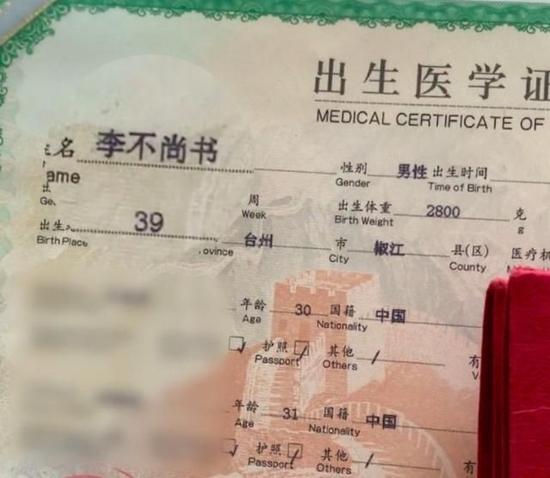 出生医学证
MEDICAL CERTIFICATE OF
名 李不尚书 性别 男性 出生时间
ame Gender Time of Birth
39 周 出生体重 2800 克
Week Birth Weight g
出生 台州 市 椒江 县(区) 医疗机
Birth Place ovince City County
年龄 30 国籍 中国
Age Nationality
护照 其他 有
Passport Others V
年龄 31 国籍 中国
Age Nationality
护照 其他 有
Passport Others V